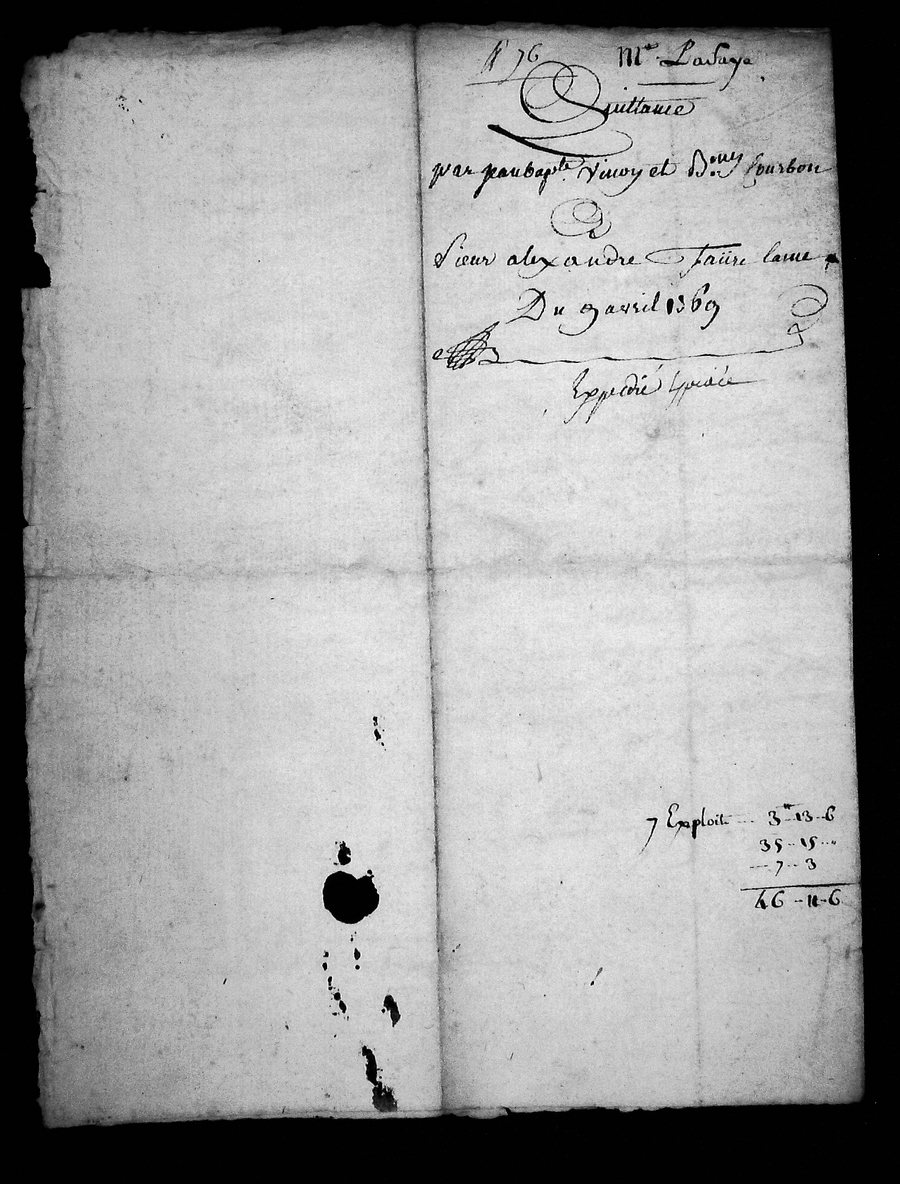 N 76 Mre Lafaye
Quittance
par jean bapte Vinoy et Bmy Courbon
a
Sieur alexandre Faure
Du 9 avril 1769
Expedié
7 Exploit -- 3tt--13--6
35--15--"
--7--3
46--11--6